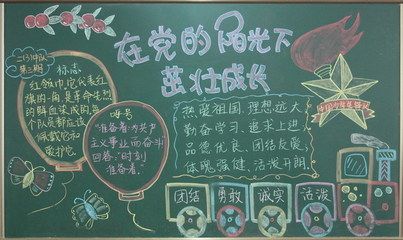 在党的阳光下
茁壮成长
二(3)中队
第三期
标志
红领巾,它代表红
旗的一角,是革命先烈
的鲜血染成的,每
个队员都应该
佩戴它和
爱护它.
呼号
"准备着:为共产
主义事业而奋斗
回答:"时刻
准备着."
热爱祖国、理想远大
勤奋学习、追求上进
品德优良、团结友爱
体魄强健、活泼开朗
团结
勇敢
诚实
活泼